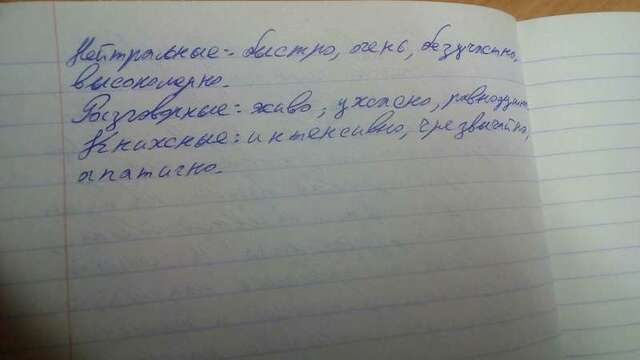 Нейтральные:- быстро, очень, безучастно,
высокомерно.
Разговорные:- живо, ужасно, равнодушно
Книжные: интенсивно, чрезвычайно,
апатично.